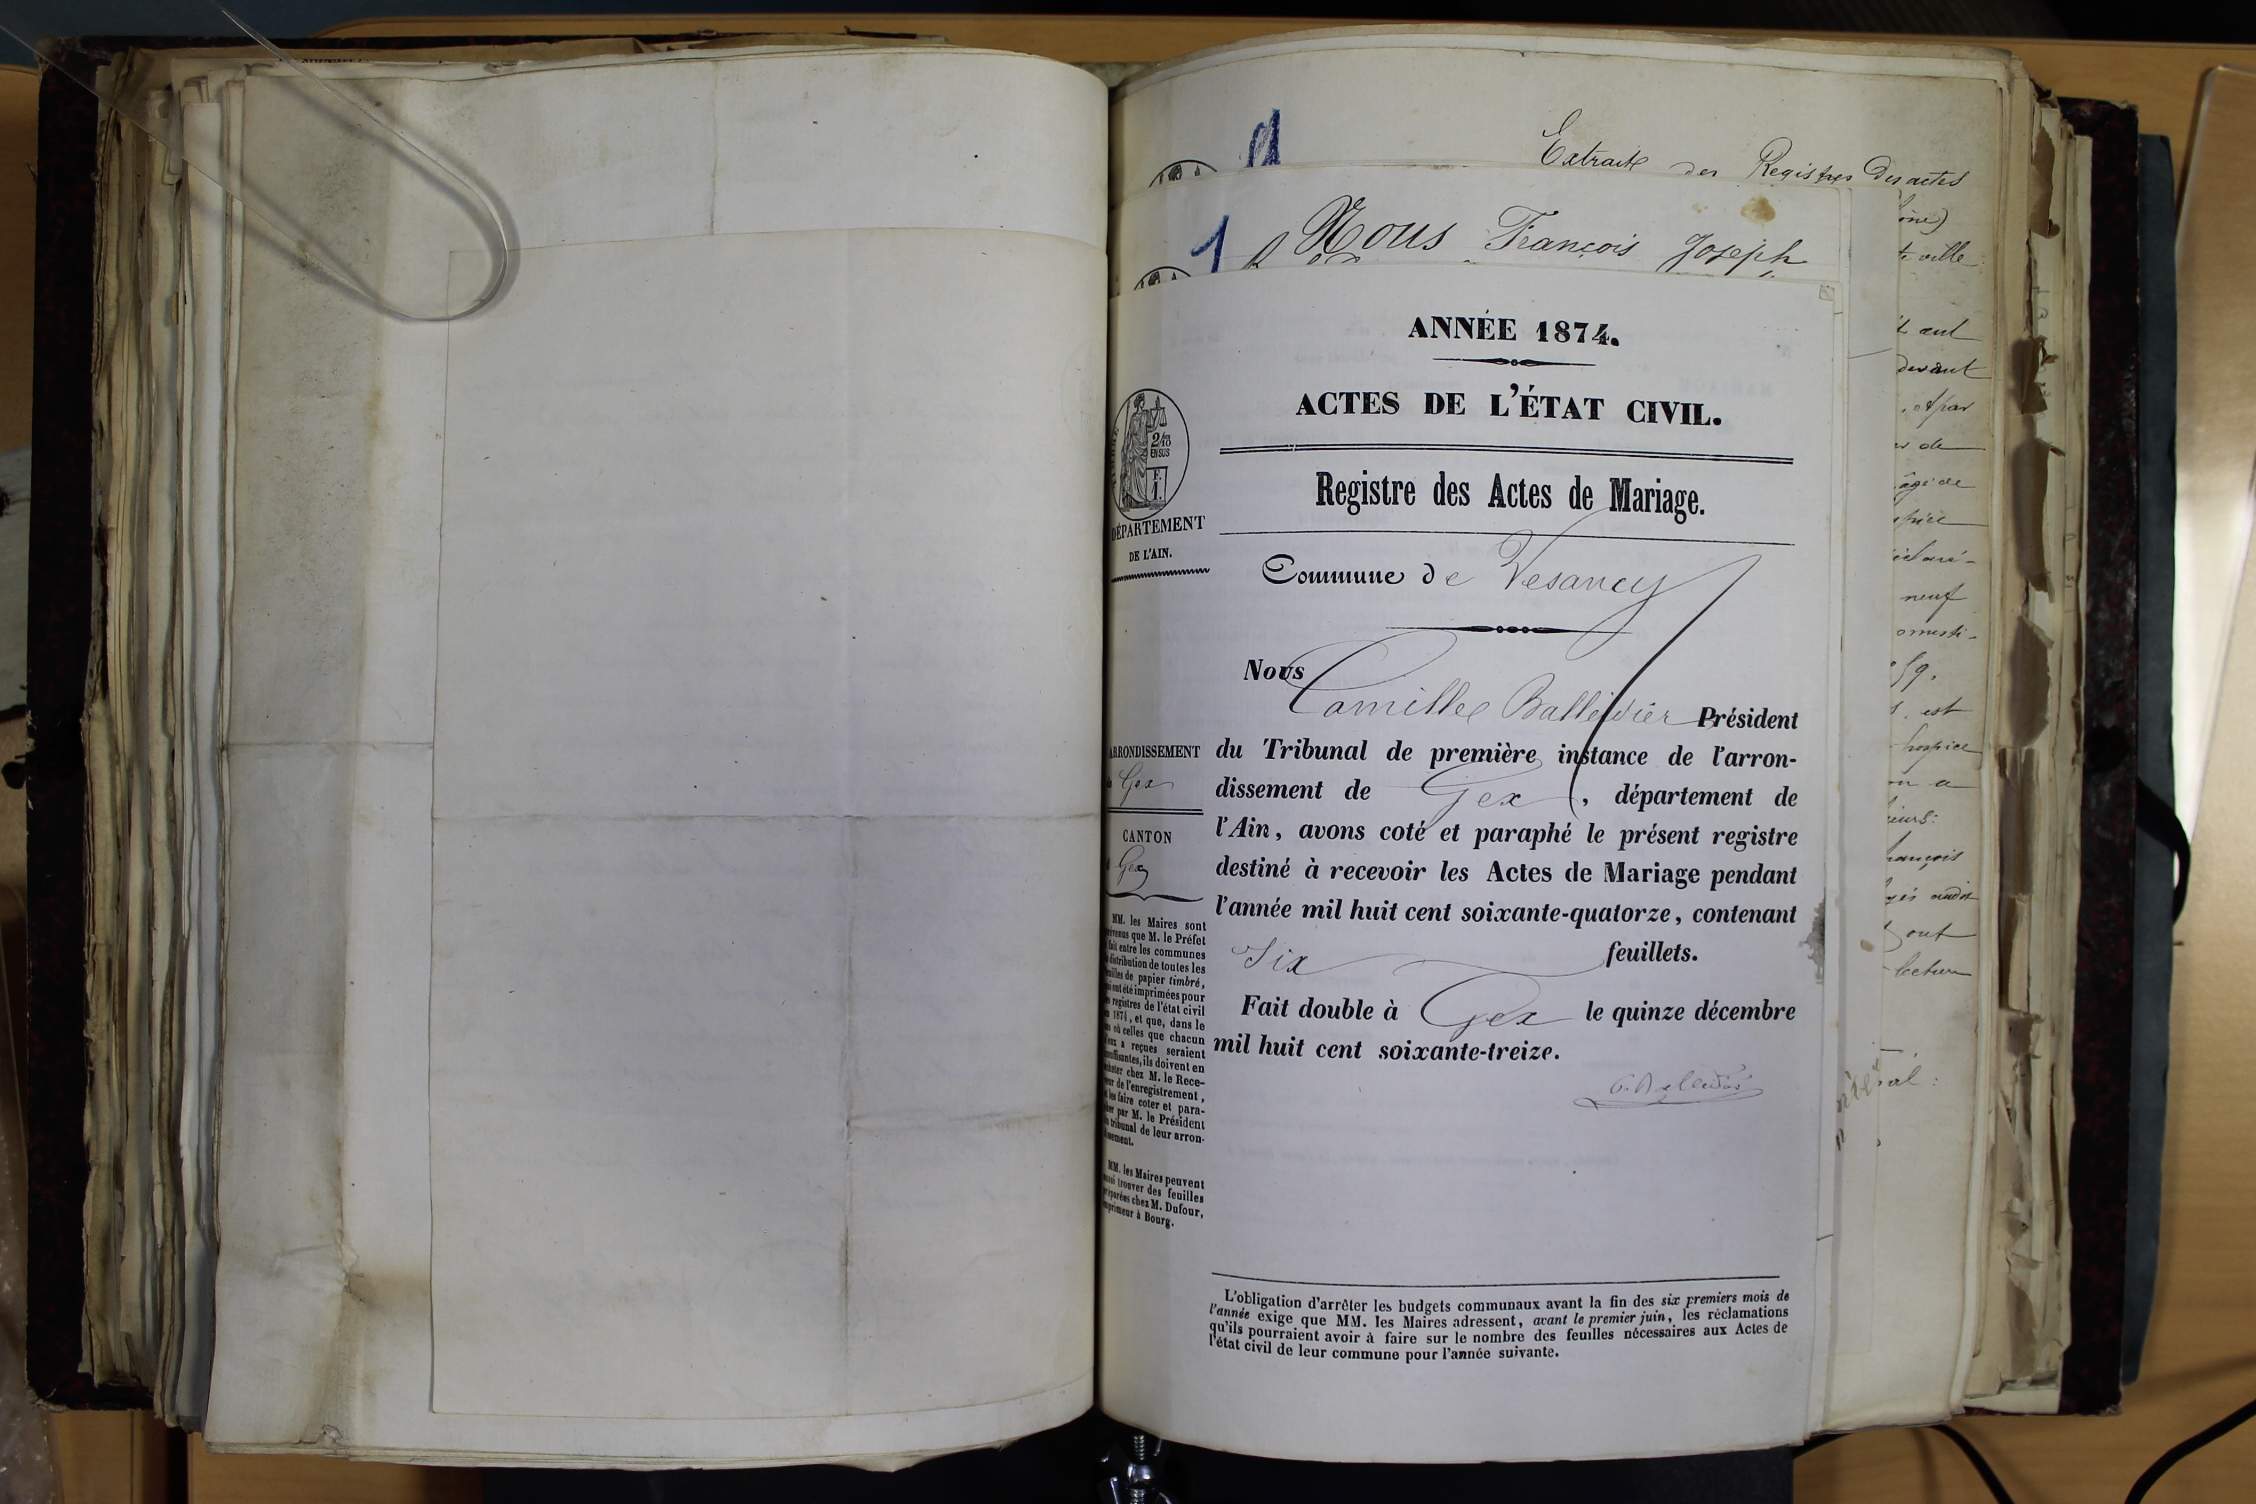 Extrait des Registres des actes
1
Nous François Joseph
ANNÉE 1874.
ACTES DE L'ÉTAT CIVIL.
2/10
EN SUS
F.
1.
DÉPARTEMENT
DE L'AIN.
Registre des Actes de Mariage.
Commune de Vesancy
Nous
Camille Balleidier Président
du Tribunal de première instance de l'arron-
dissement de Gex, département de
l'Ain, avons coté et paraphé le présent registre
destiné à recevoir les Actes de Mariage pendant
l'année mil huit cent soixante-quatorze, contenant
Six feuillets.
Fait double à Gex le quinze décembre
mil huit cent soixante-treize.
ARRONDISSEMENT
Gex
CANTON
Gex
MM. les Maires sont
prévenus que M. le Préfet
fait entre les communes
distribution de toutes les
feuilles de papier timbré,
qui ont été imprimées pour
les registres de l'état civil
1874, et que, dans le
cas où celles que chacun
d'eux a reçues seraient
insuffisantes, ils doivent en
acheter chez M. le Rece-
veur de l'enregistrement,
les faire coter et para-
pher par M. le Président
du tribunal de leur arron-
dissement.
MM. les Maires peuvent
aussi trouver des feuilles
préparées chez M. Dufour,
imprimeur à Bourg.
L'obligation d'arrêter les budgets communaux avant la fin des six premiers mois de
l'année exige que MM. les Maires adressent, avant le premier juin, les réclamations
qu'ils pourraient avoir à faire sur le nombre des feuilles nécessaires aux Actes de
l'état civil de leur commune pour l'année suivante.
ville
devant
de
âgé de
neuf
59.
est
hospice
a